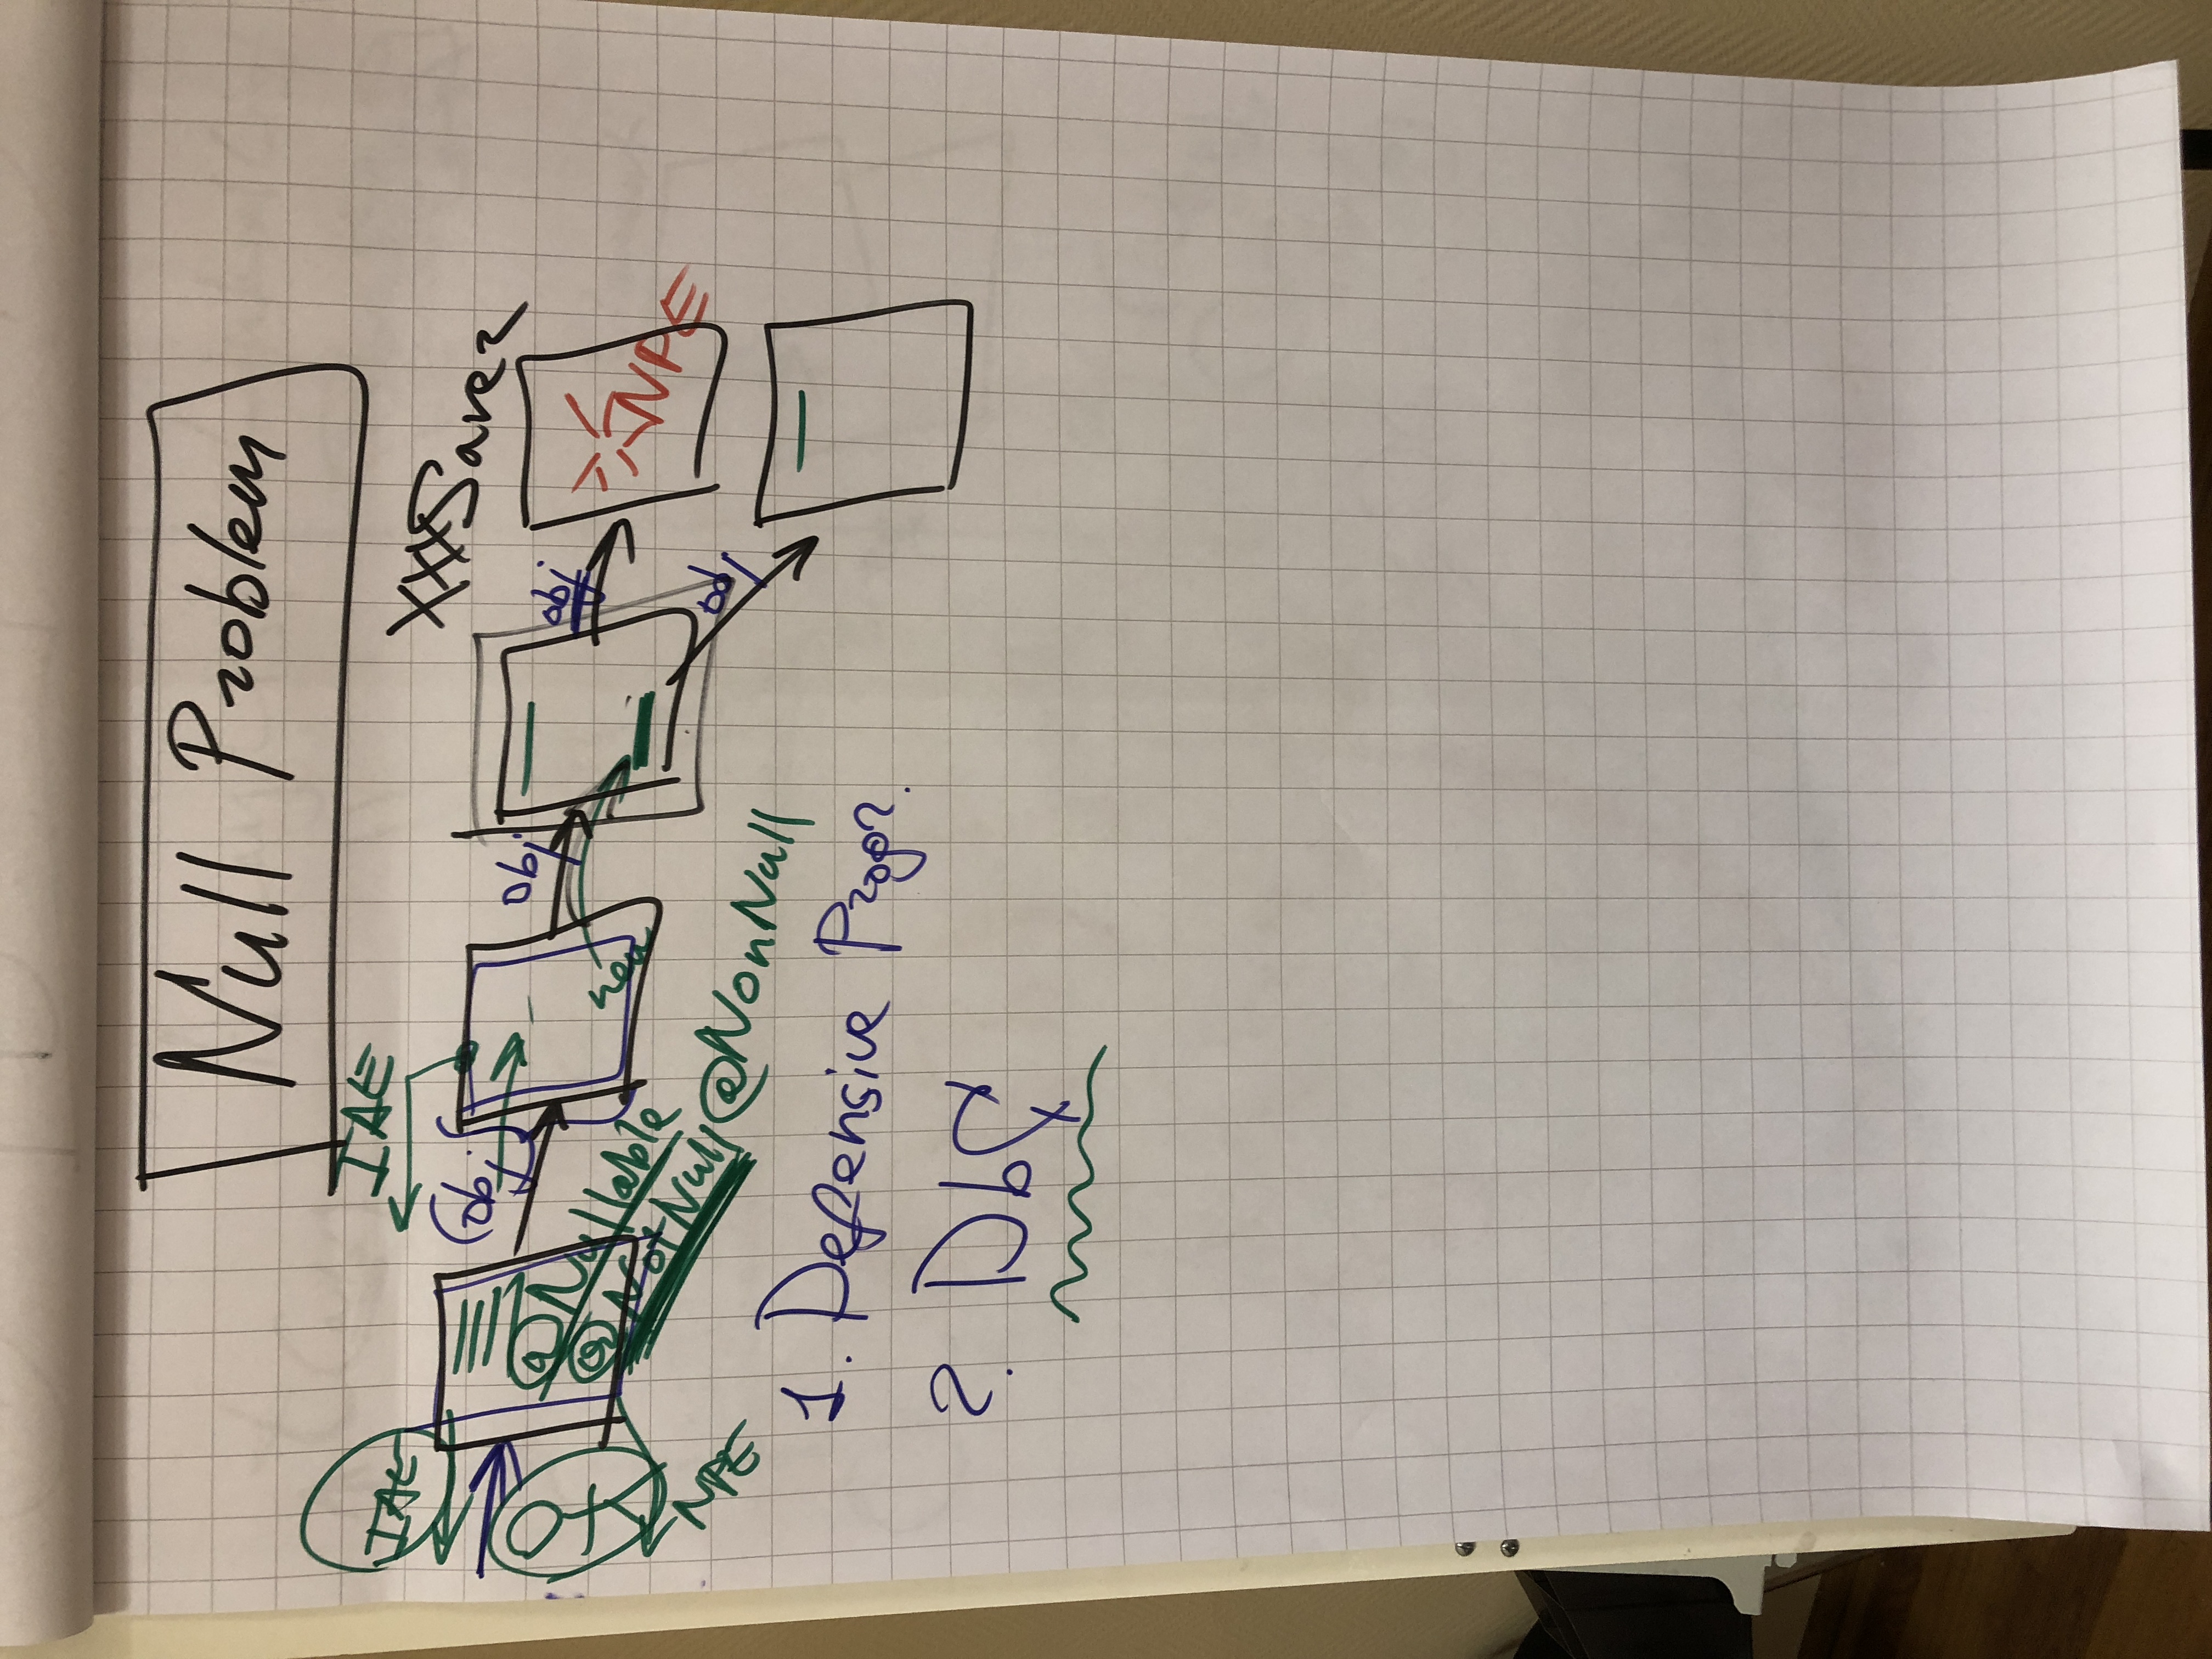 Null Problem
IAE
IAE
XXXSaver
obj
obj
obj
obj
new
NPE
@Nullable
@NotNull
@NonNull
NPE
1. Defensive Progr.
2. DbC